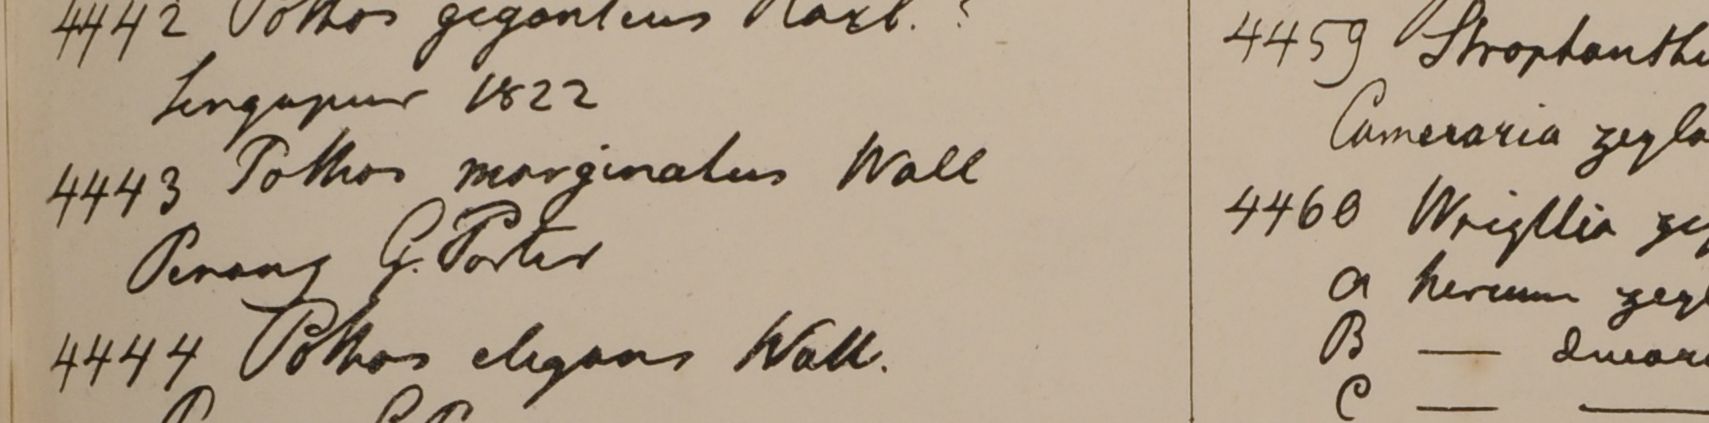 4442 Pothos giganteus Roxb. ?
Singapur 1822
4443 Pothos marginatus Wall
Penang G. Porter
4444 Pothos elegans Wall.
4459 Strophanthu
Cameraria zeyla
4460 Wrightia zey
a Nerium zeyl
B —
C — —